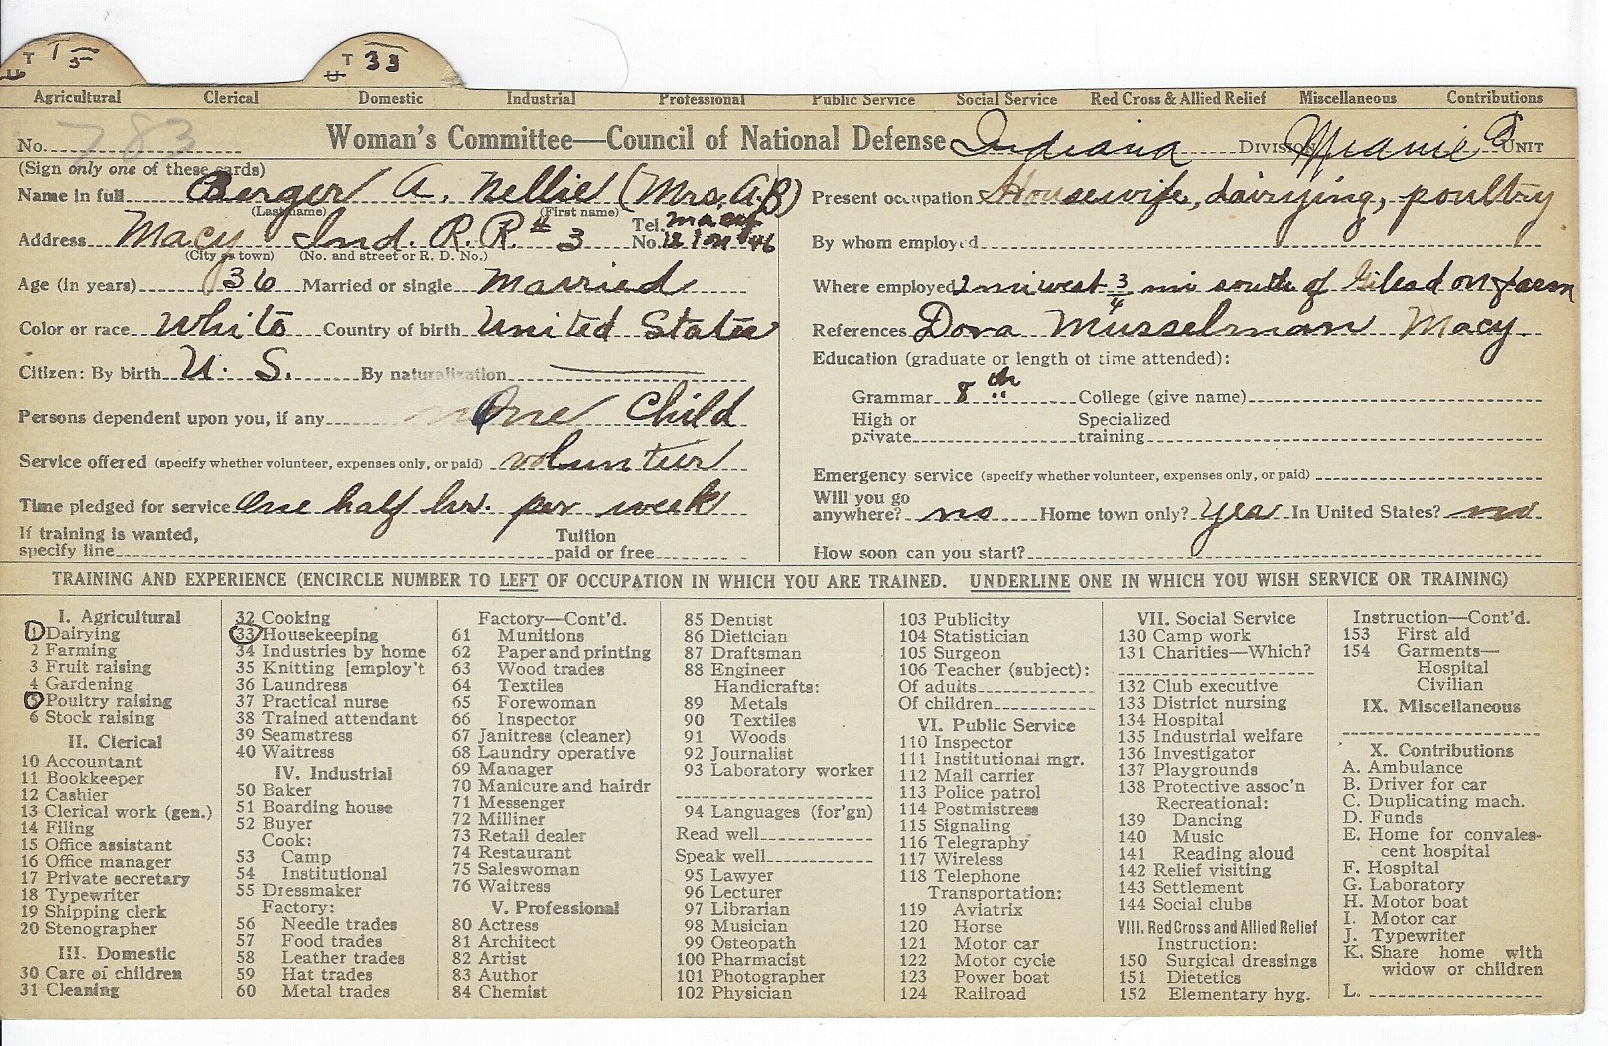 T 1 5 T 33
Agricultural Clerical Domestic Industrial Professional Public Service Social Service Red Cross & Allied Relief Miscellaneous Contributions
No. 783 Woman's Committee—Council of National Defense Indiana DIVISION Miami UNIT
(Sign only one of these cards)
Name in full Berger A. Nellie (Mrs. A.B)
(Last name) (First name)
Address Macy Ind. R.R. # 3 Tel. No. Macy 12 1 on 46
(City or town) (No. and street or R. D. No.)
Age (in years) 36 Married or single Married
Color or race White Country of birth United States
Citizen: By birth U. S. By naturalization
Persons dependent upon you, if any One Child
Service offered (specify whether volunteer, expenses only, or paid) volunteer
Time pledged for service One half hr. per week
If training is wanted, specify line Tuition paid or free
Present occupation Housewife, dairying, poultry
By whom employed
Where employed 2 mi west 3/4 mi south of Gilead on farm
References Dora Musselman Macy
Education (graduate or length of time attended):
Grammar 8th College (give name)
High or private Specialized training
Emergency service (specify whether volunteer, expenses only, or paid)
Will you go anywhere? no Home town only? yea In United States? no
How soon can you start?
TRAINING AND EXPERIENCE (ENCIRCLE NUMBER TO LEFT OF OCCUPATION IN WHICH YOU ARE TRAINED. UNDERLINE ONE IN WHICH YOU WISH SERVICE OR TRAINING)
I. Agricultural
1 Dairying
2 Farming
3 Fruit raising
4 Gardening
5 Poultry raising
6 Stock raising
II. Clerical
10 Accountant
11 Bookkeeper
12 Cashier
13 Clerical work (gen.)
14 Filing
15 Office assistant
16 Office manager
17 Private secretary
18 Typewriter
19 Shipping clerk
20 Stenographer
III. Domestic
30 Care of children
31 Cleaning
32 Cooking
33 Housekeeping
34 Industries by home
35 Knitting [employ't
36 Laundress
37 Practical nurse
38 Trained attendant
39 Seamstress
40 Waitress
IV. Industrial
50 Baker
51 Boarding house
52 Buyer
Cook:
53 Camp
54 Institutional
55 Dressmaker
Factory:
56 Needle trades
57 Food trades
58 Leather trades
59 Hat trades
60 Metal trades
Factory—Cont'd.
61 Munitions
62 Paper and printing
63 Wood trades
64 Textiles
65 Forewoman
66 Inspector
67 Janitress (cleaner)
68 Laundry operative
69 Manager
70 Manicure and hairdr
71 Messenger
72 Milliner
73 Retail dealer
74 Restaurant
75 Saleswoman
76 Waitress
V. Professional
80 Actress
81 Architect
82 Artist
83 Author
84 Chemist
85 Dentist
86 Dietician
87 Draftsman
88 Engineer
Handicrafts:
89 Metals
90 Textiles
91 Woods
92 Journalist
93 Laboratory worker
94 Languages (for'gn)
Read well
Speak well
95 Lawyer
96 Lecturer
97 Librarian
98 Musician
99 Osteopath
100 Pharmacist
101 Photographer
102 Physician
103 Publicity
104 Statistician
105 Surgeon
106 Teacher (subject):
Of adults
Of children
VI. Public Service
110 Inspector
111 Institutional mgr.
112 Mail carrier
113 Police patrol
114 Postmistress
115 Signaling
116 Telegraphy
117 Wireless
118 Telephone
Transportation:
119 Aviatrix
120 Horse
121 Motor car
122 Motor cycle
123 Power boat
124 Railroad
VII. Social Service
130 Camp work
131 Charities—Which?
132 Club executive
133 District nursing
134 Hospital
135 Industrial welfare
136 Investigator
137 Playgrounds
138 Protective assoc'n
Recreational:
139 Dancing
140 Music
141 Reading aloud
142 Relief visiting
143 Settlement
144 Social clubs
VIII. Red Cross and Allied Relief
Instruction:
150 Surgical dressings
151 Dietetics
152 Elementary hyg.
Instruction—Cont'd.
153 First aid
154 Garments—
Hospital
Civilian
IX. Miscellaneous
X. Contributions
A. Ambulance
B. Driver for car
C. Duplicating mach.
D. Funds
E. Home for convales-
cent hospital
F. Hospital
G. Laboratory
H. Motor boat
I. Motor car
J. Typewriter
K. Share home with
widow or children
L.